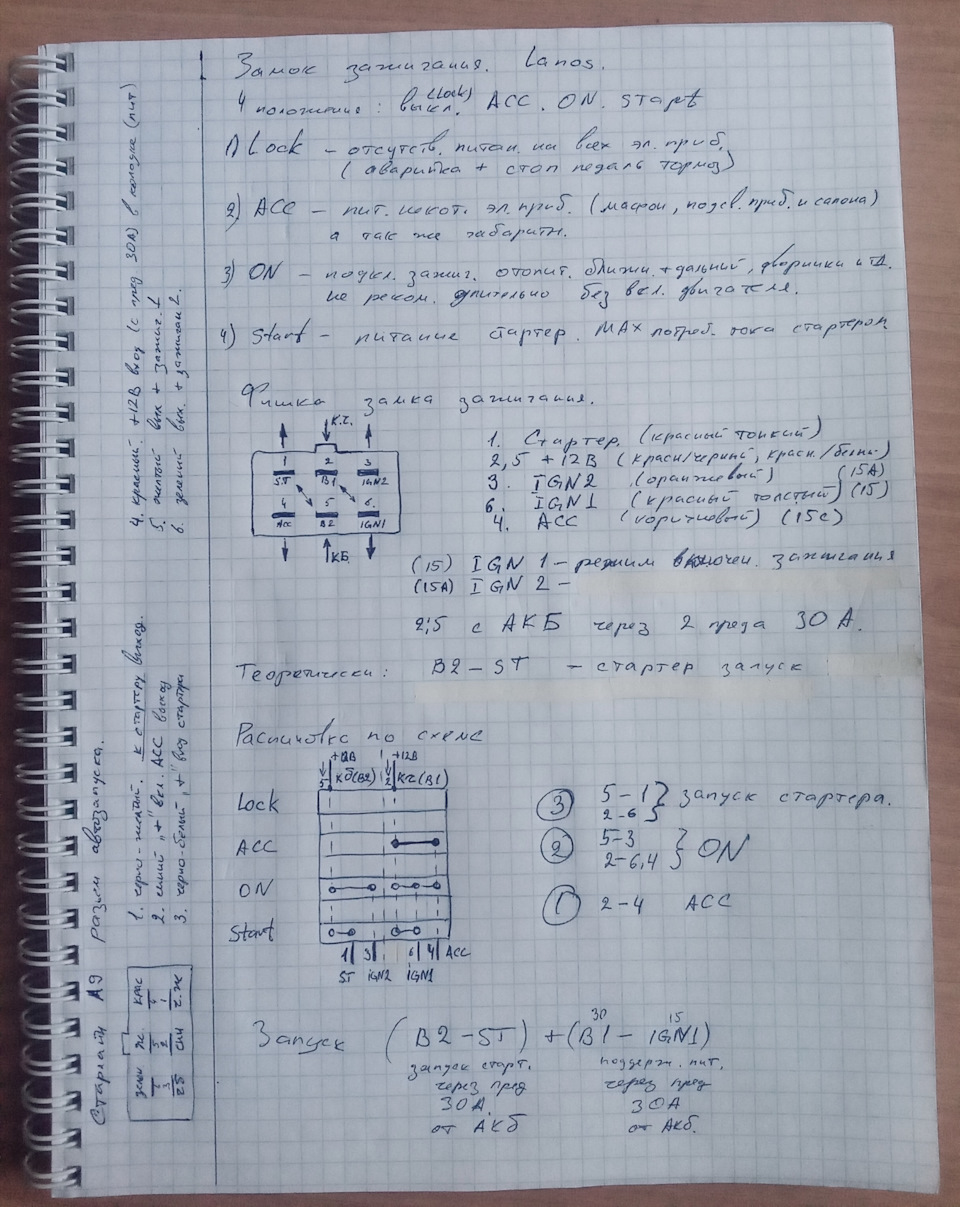 Замок зажигания. Lanos.
4 положения: выкл. (Lock) ACC. ON. Start
1) Lock – отсутств. питан. на всех эл. приб.
(аварийка + стоп педаль тормоз)
2) ACC – пит. некот. эл. приб. (мафон, подсв. приб. и салона)
а так же габаритн.
3) ON – подкл. зажиг. отопит. ближн. + дальний, дворники и т.д.
не реком. длительно без вкл. двигателя.
4) Start – питание стартер. MAX потреб. тока стартером
Фишка замка зажигания.
К.Ч.
1 2 3
ST B1 IGN2
4 5 6.
ACC B2 IGN1
КБ.
1. Стартер. (красный тонкий)
2,5 +12В (красн/черный, красн./белый)
3. IGN2 (оранжевый) (15А)
6. IGN1 (красный толстый) (15)
4. ACC (коричневый) (15с)
(15) IGN 1 – режим включен. зажигания
(15А) IGN 2 –
2;5 с АКБ через 2 преда 30А.
Теоретически: B2 – ST – стартер запуск
Распиновка по схеме
+12В +12В
5 Кб(B2) 2 Кч(B1)
Lock
ACC
ON
Start
1 3 6 4 ACC
ST IGN2 IGN1
3 5–1 2–6 } запуск стартера.
2 5–3 2–6,4 } ON
1 2–4 ACC
30 15
Запуск (B2–ST) + (B1–IGN1)
запуск старт. поддерж. пит.
через пред через пред
30А. 30А
от АКб от АКб.
Старлайн А9 разъем автозапуска.
зелен ж. крас
6 5 4
3 2 1
ч.б син ч.ж
1. черно-желтый. к стартеру выход.
2. синий "+" вкл. ACC выход
3. черно-белый "+" вход стартера
4. красный. +12В вход (с пред 30А) в колодке (пит)
5. желтый вых + зажиг. 1
6. зеленый вых. + зажиган 2.